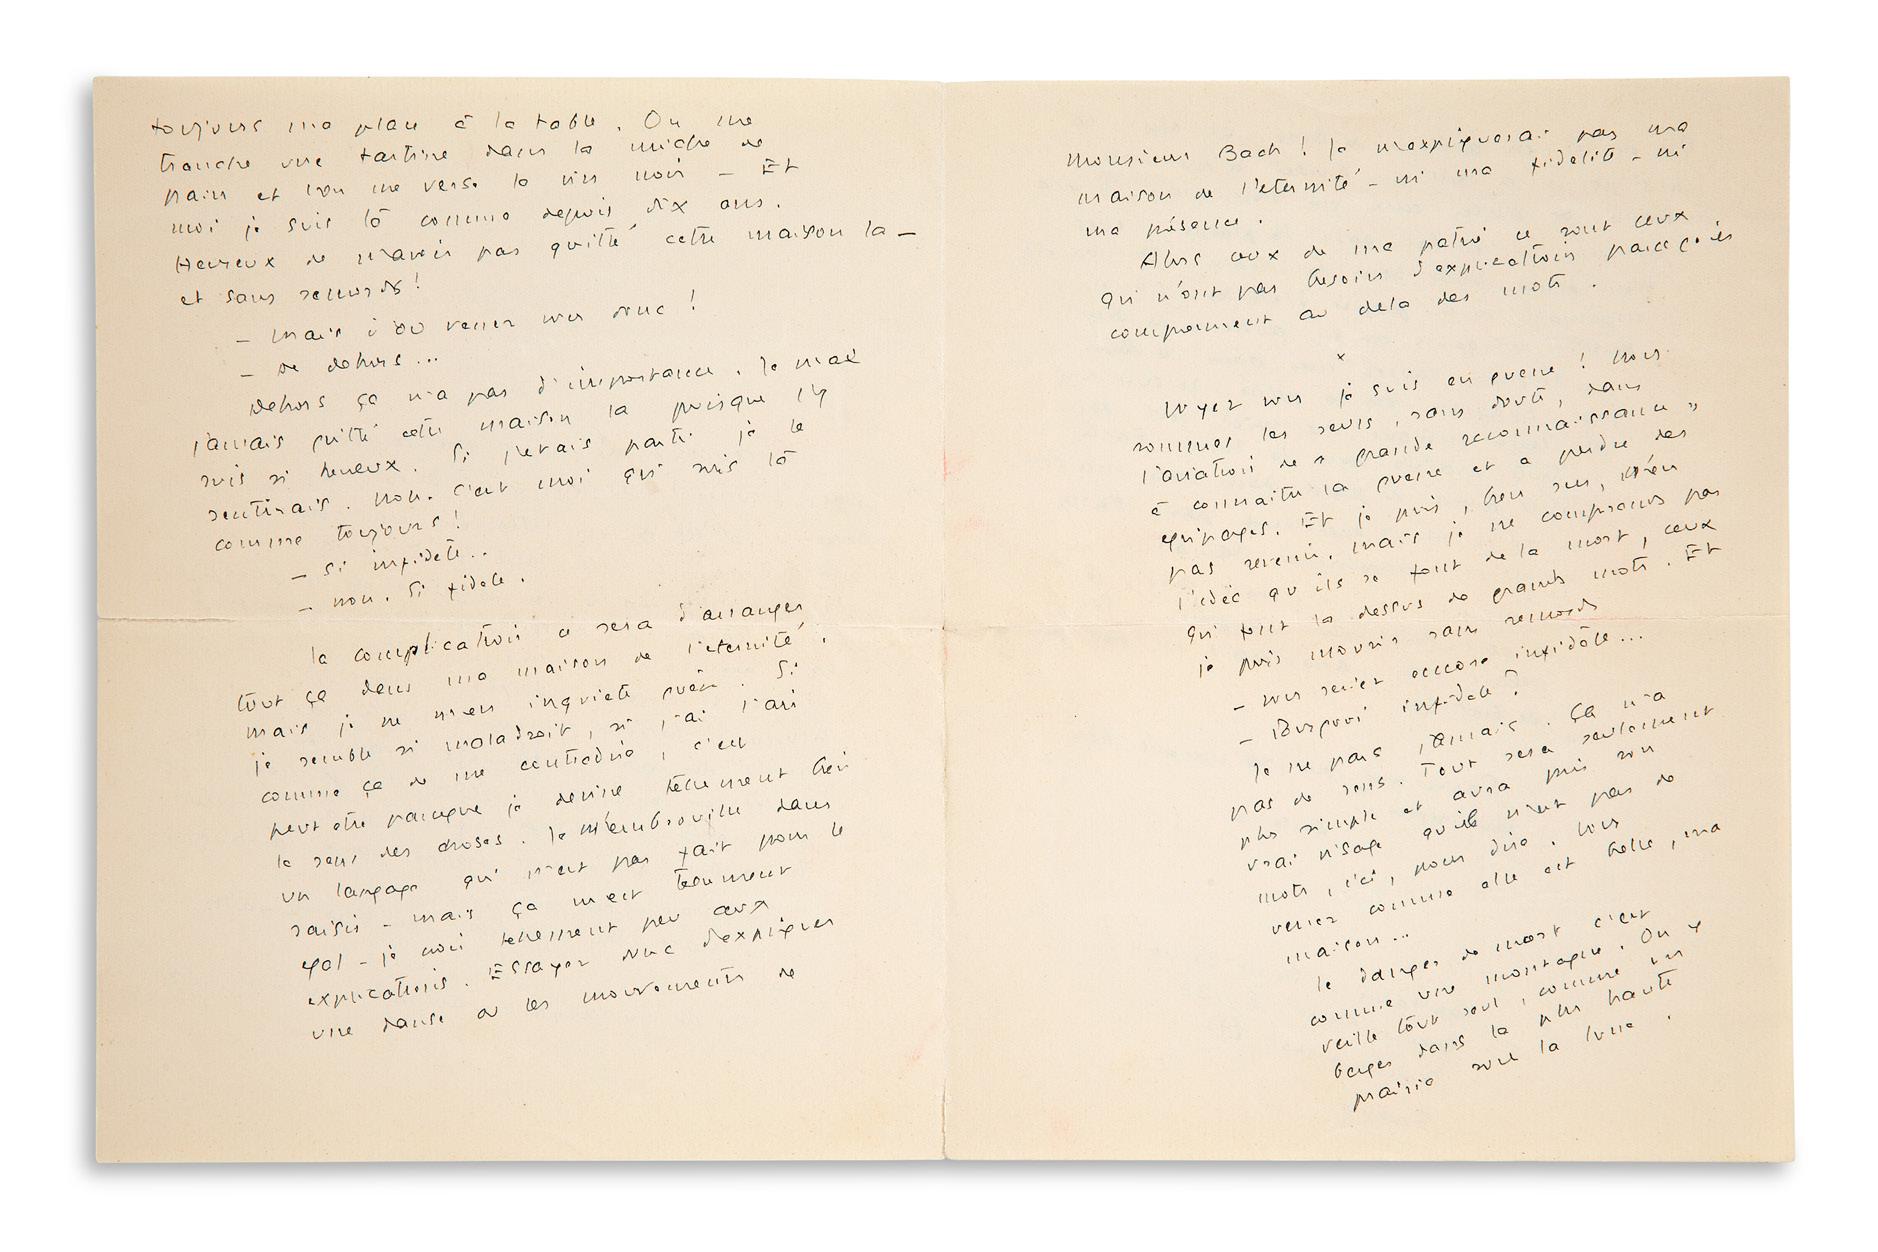 toujours ma place à la table. On me
tranche une tartine dans la miche de
pain et l'on me verse le vin noir – Et
moi je suis là comme depuis dix ans.
Heureux de n'avoir pas quitté cette maison la –
et sans remords !
– Mais d'où venez vous donc !
– De dehors...
Dehors ça n'a pas d'importance. Je n'ai
jamais quitté cette maison la puisque j'y
suis si heureux. Si j'étais parti je le
sentirais. Non. C'est moi qui suis là
comme toujours !
– Si infidele..
– Non. Si fidele.
La complication ce sera d'arranger
tout ça dans ma maison de l'eternité.
Mais je ne m'en inquiete guère. Si
je semble si maladroit, si j'ai l'air
comme ça de me contredire, c'est
peut etre parceque je devine tellement bien
le sens des choses. Je m'embrouille dans
un langage qui n'est pas fait pour le
saisir – mais ça m'est tellement
egal – je crois tellement peu aux
explications. Essayez donc d'expliquer
une danse ou les mouvements de
Monsieur Bach ! Je n'expliquerai pas ma
maison de l'eternité – ni ma fidelité – ni
ma présence.
Alors ceux de ma patrie ce sont ceux
qui n'ont pas besoin d'explication parce qu'ils
comprennent au dela des mots.
x
Voyez vous je suis en guerre ! Nous
sommes les seuls, sans doute, dans
l'aviation de « grande reconnaissance »
à connaitre la guerre et a perdre des
equipages. Et je puis, bien sur, n'en
pas revenir. Mais je ne comprends pas
l'idée qu'ils se font de la mort, ceux
qui font la dessus de grands mots. Et
je puis mourir sans remords
– Vous seriez encore infidèle...
– Pourquoi infidele ?
Je ne pars jamais. Ça n'a
pas de sens. Tout sera seulement
plus simple et aura pris son
vrai visage qu'il n'est pas de
mots, ici, pour dire. Vous
verrez comme elle est belle, ma
maison...
Le danger de mort c'est
comme une montagne. On y
veille tout seul, comme un
berger dans la plus haute
prairie sous la lune.